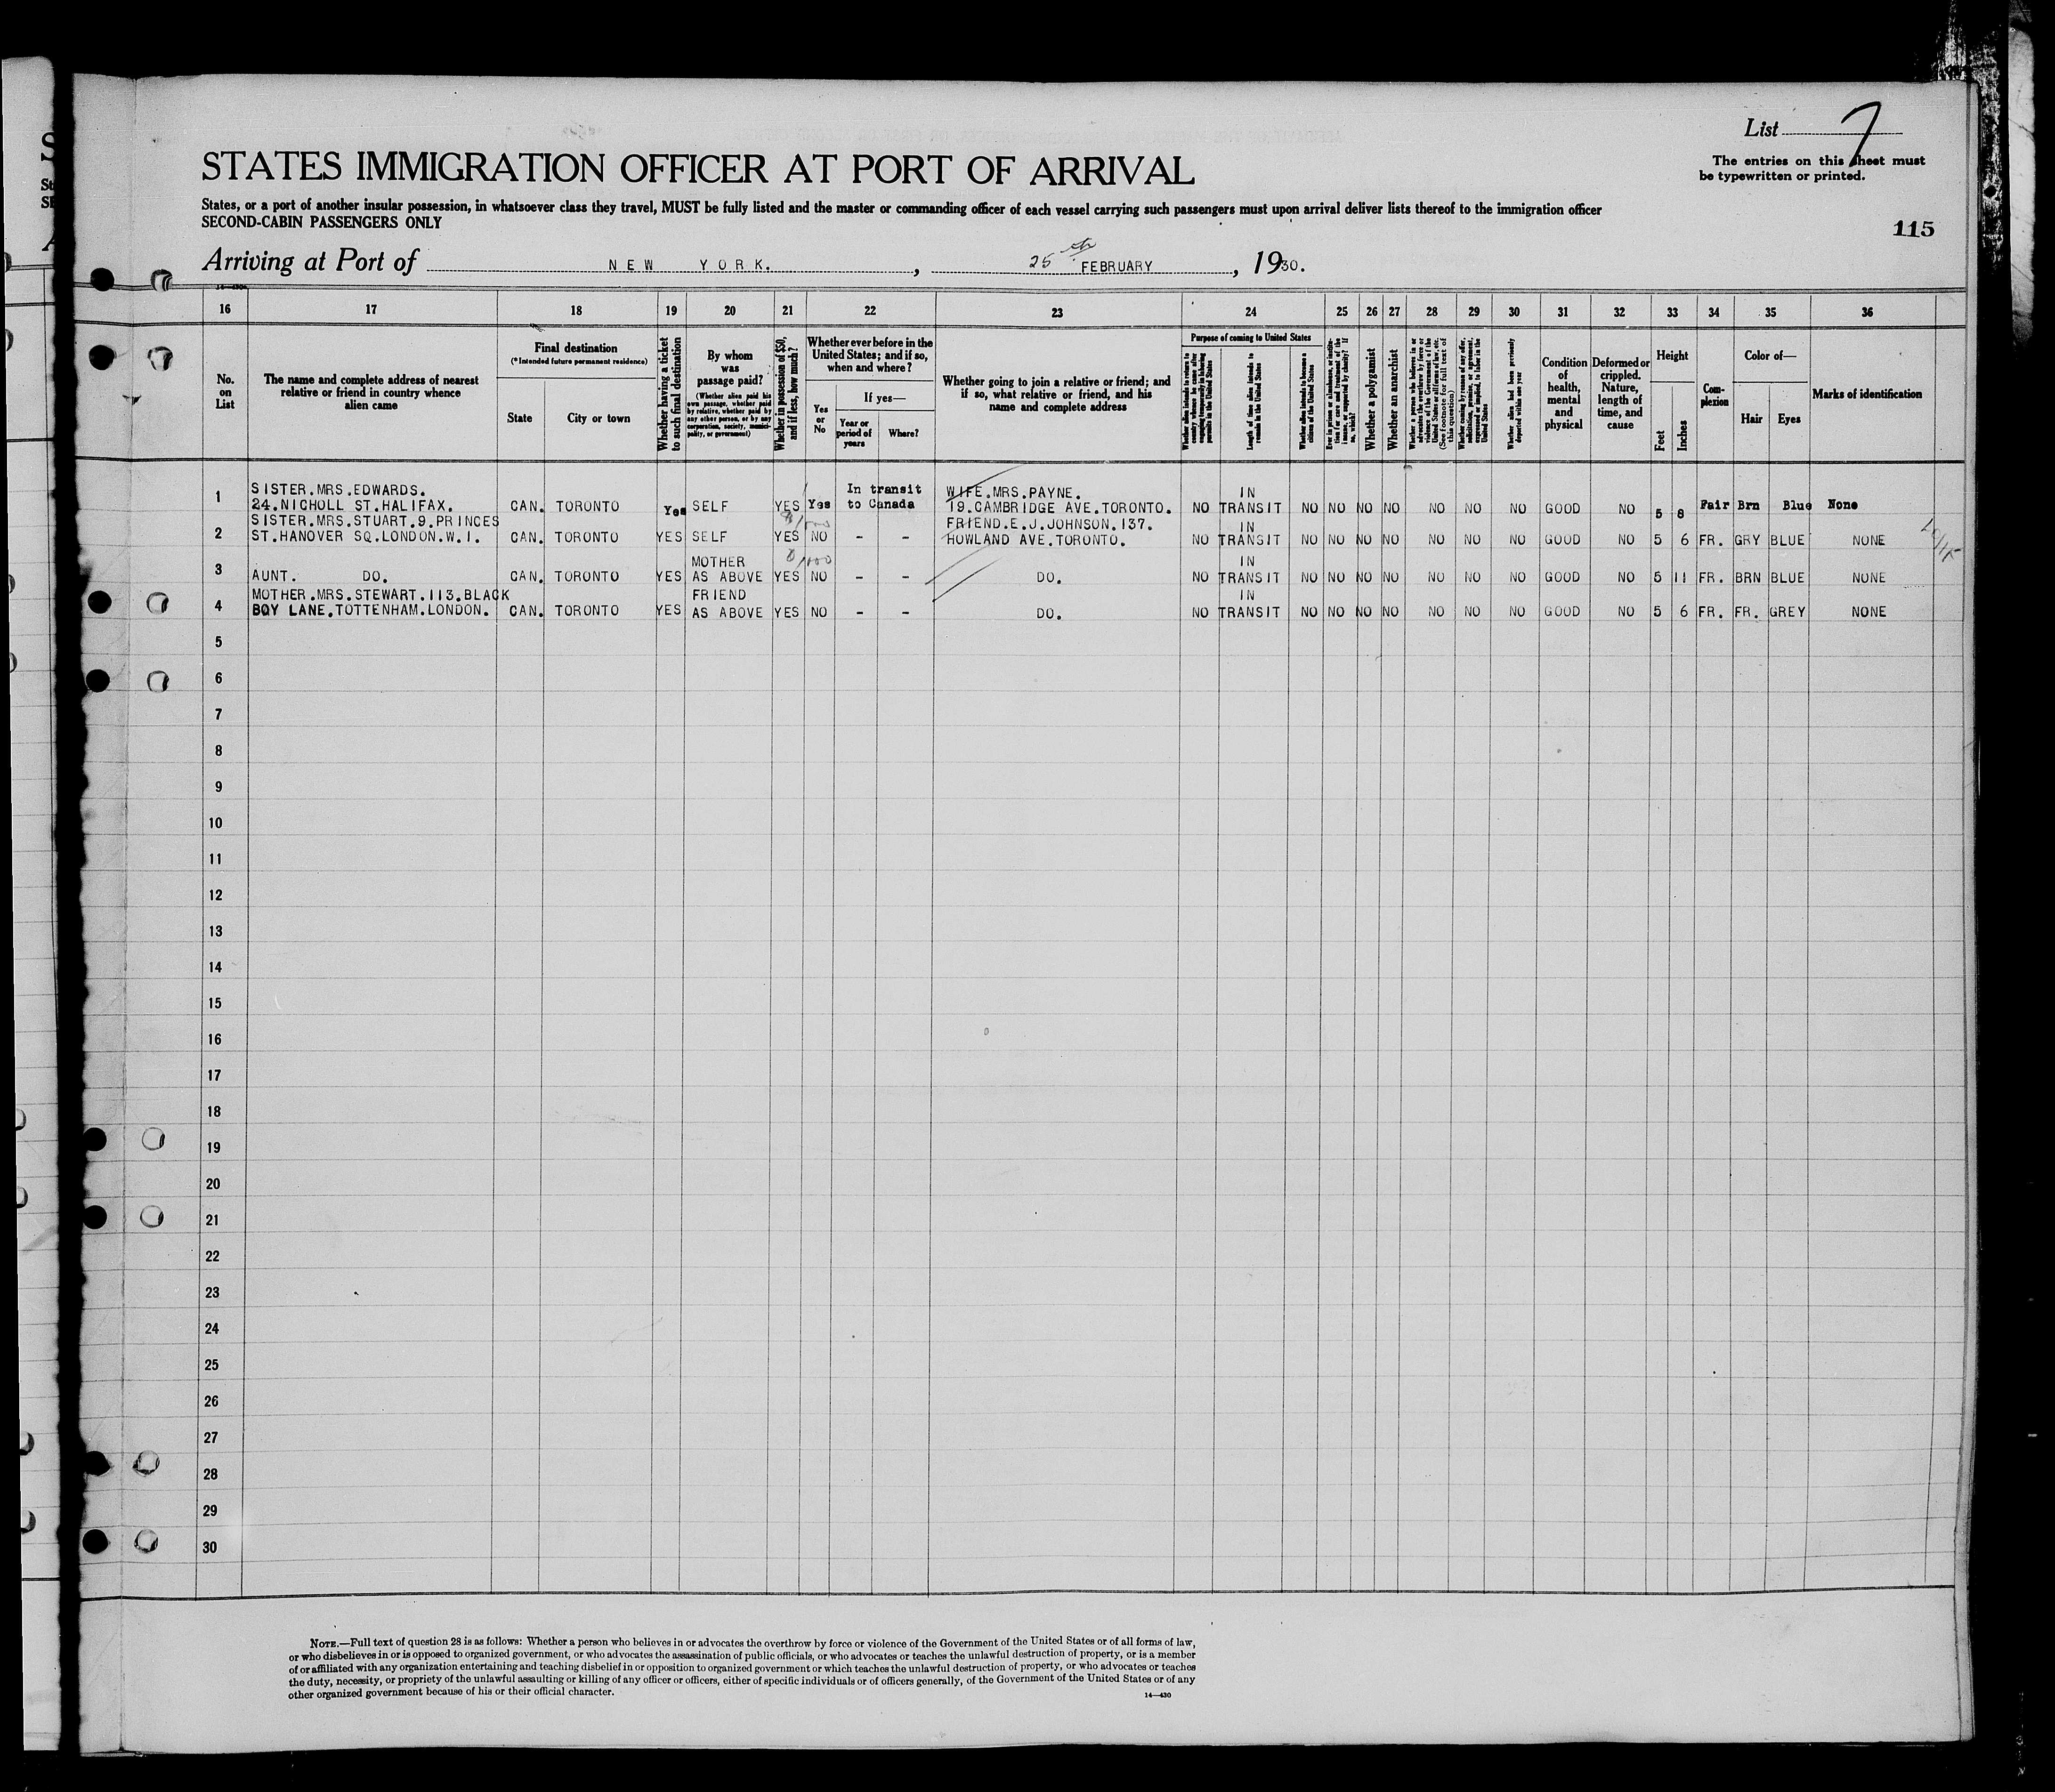 List 7
The entries on this sheet must
be typewritten or printed.
STATES IMMIGRATION OFFICER AT PORT OF ARRIVAL
States, or a port of another insular possession, in whatsoever class they travel, MUST be fully listed and the master or commanding officer of each vessel carrying such passengers must upon arrival deliver lists thereof to the immigration officer
SECOND-CABIN PASSENGERS ONLY
115
Arriving at Port of NEW YORK. , 25th FEBRUARY , 1930.
16 17 18 19 20 21 22 23 24 25 26 27 28 29 30 31 32 33 34 35 36
No.
on
List
The name and complete address of nearest
relative or friend in country whence
alien came
Final destination
(*Intended future permanent residence)
State
City or town
Whether having a ticket
to such final destination
By whom
was
passage paid?
(Whether alien paid his
own passage, whether paid
by relative, whether paid by
any other person, or by any
corporation, society, munici-
pality, or government)
Whether in possession of $50,
and if less, how much?
Whether ever before in the
United States; and if so,
when and where?
Yes
or
No
If yes—
Year or
period of
years
Where?
Whether going to join a relative or friend; and
if so, what relative or friend, and his
name and complete address
Purpose of coming to United States
Whether alien intends to return to
country whence he came after
engaging temporarily in laboring
pursuits in the United States
Length of time alien intends to
remain in the United States
Whether alien intends to become a
citizen of the United States
Ever in prison or almshouse, or institu-
tion for care and treatment of the
insane, or supported by charity? If
so, which?
Whether a polygamist
Whether an anarchist
Whether a person who believes in or
advocates the overthrow by force or
violence of the Government of the
United States or all forms of law, etc.
(See footnote for full text of
this question)
Whether coming by reason of any offer,
solicitation, promise, or agreement,
expressed or implied, to labor in the
United States
Whether alien had been previously
deported within one year
Condition
of
health,
mental
and
physical
Deformed or
crippled.
Nature,
length of
time, and
cause
Height
Feet
Inches
Com-
plexion
Color of—
Hair
Eyes
Marks of identification
1 SISTER.MRS.EDWARDS. In transit WIFE.MRS.PAYNE. IN
24.NICHOLL ST.HALIFAX. CAN. TORONTO Yes SELF YES Yes to Canada 19.CAMBRIDGE AVE.TORONTO. NO TRANSIT NO NO NO NO NO NO NO GOOD NO 5 8 Fair Brn Blue None
2 SISTER.MRS.STUART.9.PRINCES FRIEND.E.J.JOHNSON.137. IN
ST.HANOVER SQ.LONDON.W.1. CAN. TORONTO YES SELF YES NO - - HOWLAND AVE.TORONTO. NO TRANSIT NO NO NO NO NO NO NO GOOD NO 5 6 FR. GRY BLUE NONE
3 MOTHER IN
AUNT. DO. CAN. TORONTO YES AS ABOVE YES NO - - DO. NO TRANSIT NO NO NO NO NO NO NO GOOD NO 5 11 FR. BRN BLUE NONE
4 MOTHER.MRS.STEWART.113.BLACK FRIEND IN
BOY LANE.TOTTENHAM.LONDON. CAN. TORONTO YES AS ABOVE YES NO - - DO. NO TRANSIT NO NO NO NO NO NO NO GOOD NO 5 6 FR. FR. GREY NONE
5
6
7
8
9
10
11
12
13
14
15
16
17
18
19
20
21
22
23
24
25
26
27
28
29
30
NOTE.—Full text of question 28 is as follows: Whether a person who believes in or advocates the overthrow by force or violence of the Government of the United States or of all forms of law,
or who disbelieves in or is opposed to organized government, or who advocates the assassination of public officials, or who advocates or teaches the unlawful destruction of property, or is a member
of or affiliated with any organization entertaining and teaching disbelief in or opposition to organized government or which teaches the unlawful destruction of property, or who advocates or teaches
the duty, necessity, or propriety of the unlawful assaulting or killing of any officer or officers, either of specific individuals or of officers generally, of the Government of the United States or of any
other organized government because of his or their official character.
14—430